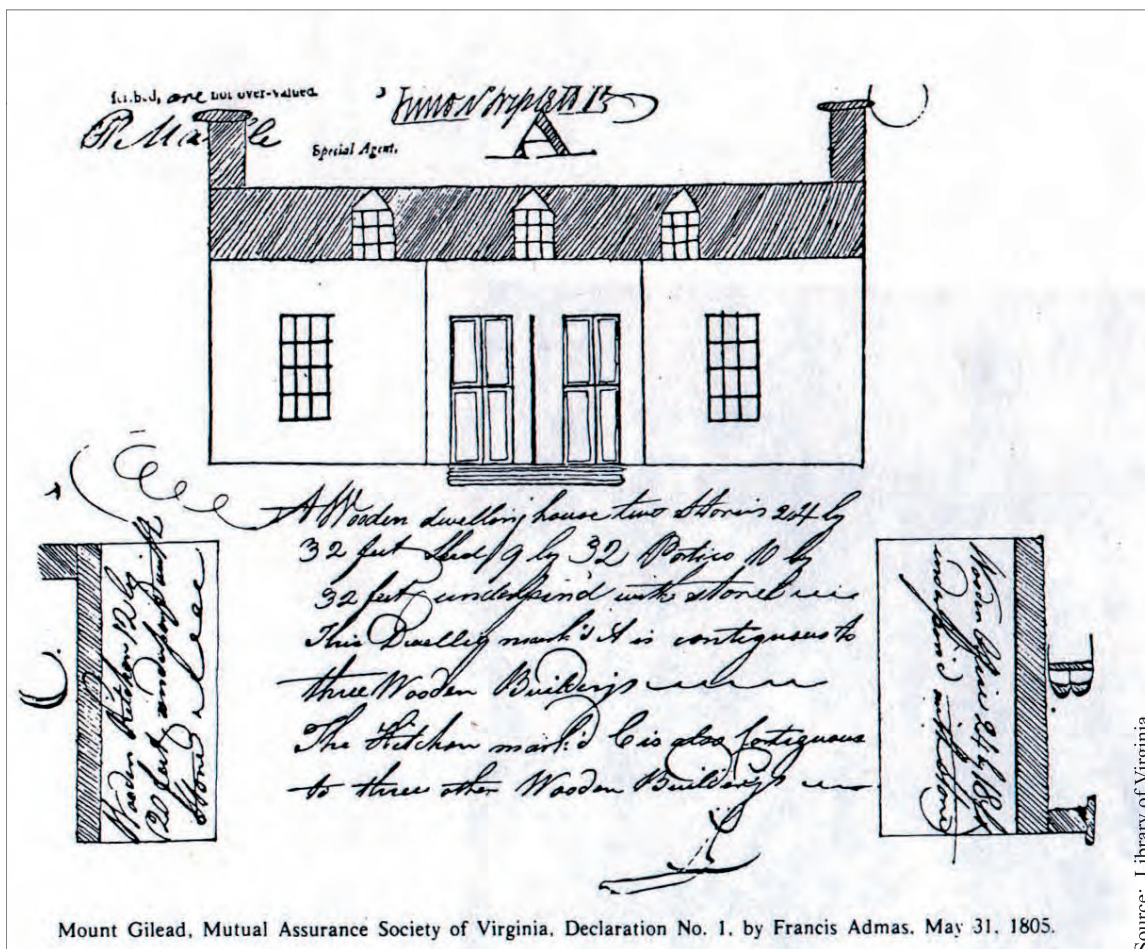 are not over-valued.
Special Agent.
A
A Wooden dwelling house two Stories 24 by
32 feet Shed 9 by 32 Portico 10 by
32 feet underpind with stone
This Dwellig mark'd A is contiguous to
three Wooden Buildings
The Kitchen mark'd C is also Contiguous
to three other Wooden Buildings
C.
Wooden Kitchen 12 by
20 feet underpind with
Stone
B.
Wooden Office 24 by 18 ft
underpin'd with Stone
Mount Gilead, Mutual Assurance Society of Virginia, Declaration No. 1, by Francis Admas, May 31, 1805.
Library of Virginia